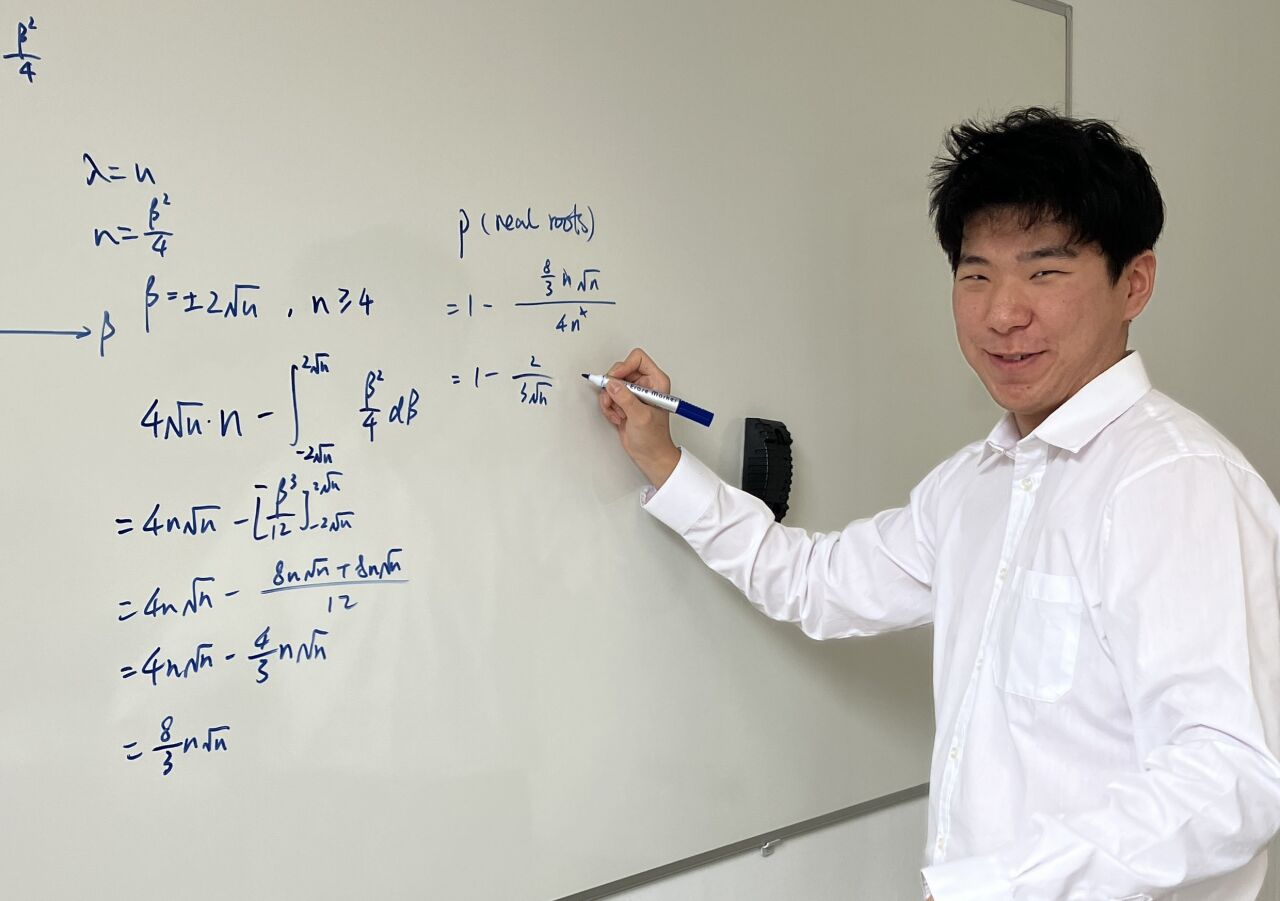 β²/4
λ=n
n=β²/4
β=±2√n , n≥4
β
4√n·n - ∫_{-2√n}^{2√n} β²/4 dβ
=4n√n - [β³/12]_{-2√n}^{2√n}
=4n√n - (8n√n+8n√n)/12
=4n√n - 4/3 n√n
= 8/3 n√n
p (real roots)
=1- (8/3 n√n)/(4n²)
=1- 2/(3√n)
Erase Marker